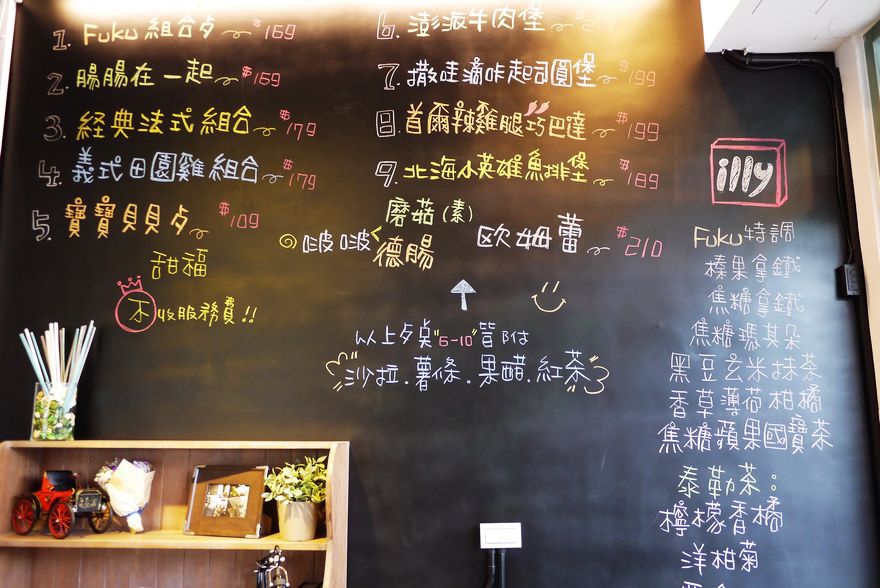 1. Fuku 組合歺 $169
2. 腸腸在一起 $169
3. 經典法式組合 $179
4. 義式田園雞組合 $179
5. 寶寶貝貝歺 $109
甜福
不收服務費!!
6. 澎派牛肉堡
7. 撒哇滴咔起司圓堡 $199
8. 首爾辣雞腿巧巴達 $199
9. 北海小英雄魚排堡 $189
啵啵
磨菇(素)
德腸
歐姆蕾 $210
以上歺奌"6-10"皆附
沙拉.薯條.果醋.紅茶
illy
Fuku特調
榛果拿鐵
焦糖拿鐵
焦糖瑪其朵
黑豆玄米抹茶
香草薄荷柑橘
焦糖蘋果國寶茶
泰勒茶:
檸檬香橘
洋柑菊